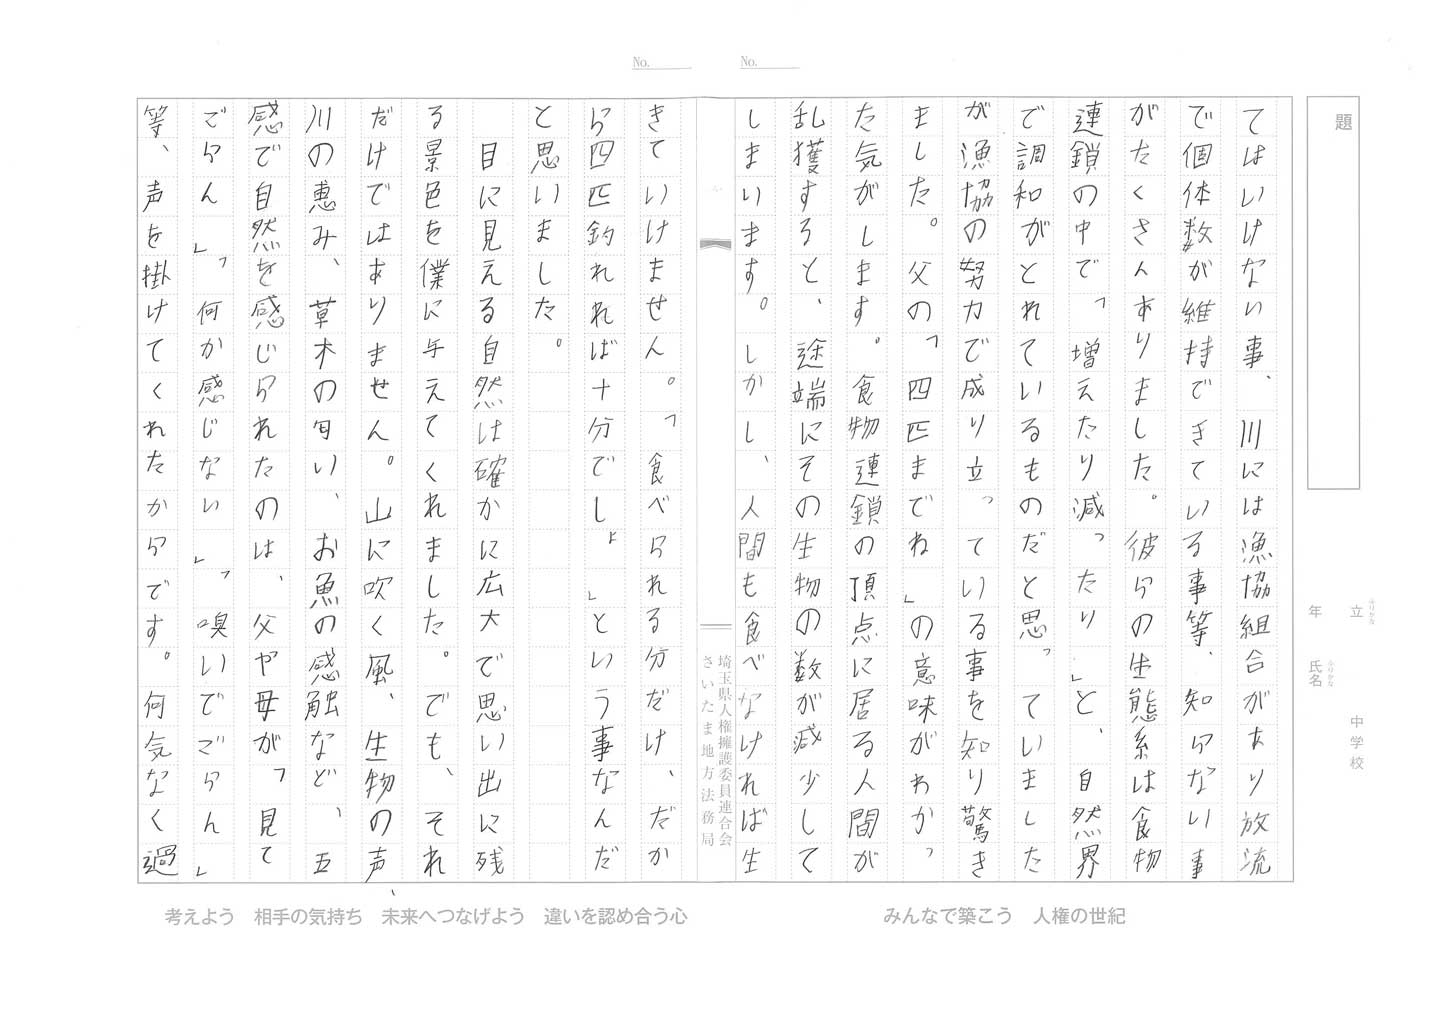 No.
No.
題
立 ふりがな
中学校
年
氏名 ふりがな
てはいけない事、川には漁協組合があり放流
で個体数が維持できている事等、知らない事
がたくさんありました。彼らの生態系は食物
連鎖の中で、「増えたり減ったり」と、自然界
で調和がとれているものだと思っていました
が漁協の努力で成り立っている事を知り驚き
ました。父の「四匹までね」の意味がわかっ
た気がします。食物連鎖の頂点に居る人間が
乱獲すると、途端にその生物の数が減少して
しまいます。しかし、人間も食べなければ生
埼玉県人権擁護委員連合会
さいたま地方法務局
きていけません。「食べられる分だけ、だか
ら四匹釣れれば十分でしょ」という事なんだ
と思いました。
目に見える自然は確かに広大で思い出に残
る景色を僕に与えてくれました。でも、それ
だけではありません。山に吹く風、生物の声、
川の恵み、草木の匂い、お魚の感触など、五
感で自然を感じられたのは、父や母が「見て
ごらん」「何か感じない」「嗅いでごらん」
等、声を掛けてくれたからです。何気なく過
みんなで築こう 人権の世紀
考えよう 相手の気持ち 未来へつなげよう 違いを認め合う心